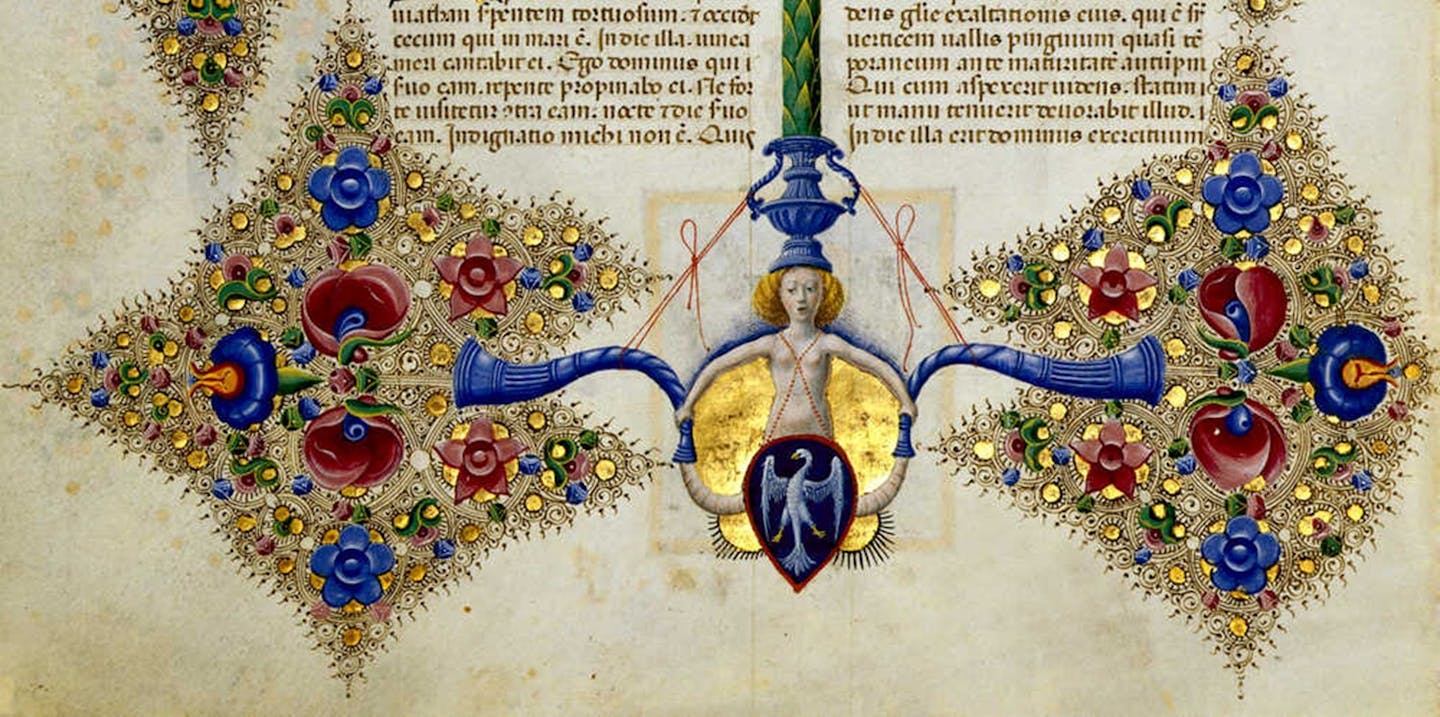 uiathan s͛pentem tortuosum. ⁊ occidꝫ
cecum qui in mari ē. In die illa. uinea
meri cantabit ei. Ego dominus qui s
s͛uo eam. repente propinabo ei. Ne for
te uisitetur ꝯtra eam. nocte ⁊ die s͛uo
eam. Indignatio michi non ē. Quis
dens glīe exaltationis eius. qui ē sr̄
uerticem uallis pinguium quasi tē
poraneum ante maturitatē autūpni
Qui cum aspexerit uidens. statim i
ut manu tenuerit deuorabit illud. i
In die illa erit dominus exercituum